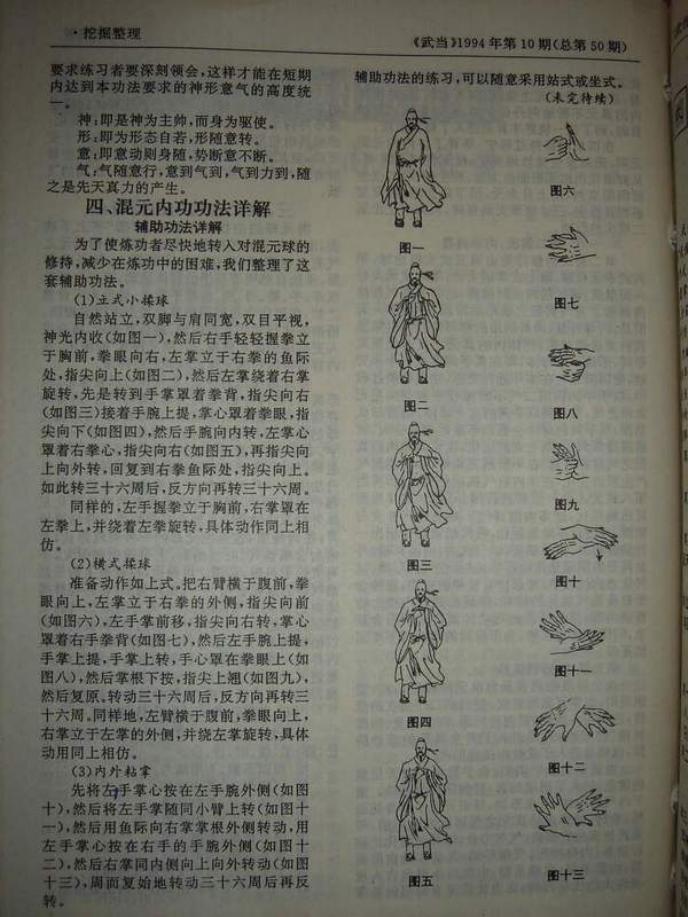 ·挖掘整理
《武当》1994年第10期(总第50期)
要求练习者要深刻领会,这样才能在短期
内达到本功法要求的神形意气的高度统
一。
神:即是神为主帅,而身为驱使。
形:即为形态自若,形随意转。
意:即意动则身随,势断意不断。
气:气随意行,意到气到,气到力到,随
之是先天真力的产生。
四、混元内功功法详解
辅助功法详解
为了使炼功者尽快地转入对混元球的
修持,减少在炼功中的困难,我们整理了这
套辅助功法。
(1)立式小揉球
自然站立,双脚与肩同宽,双目平视,
神光内收(如图一),然后右手轻轻握拳立
于胸前,拳眼向右,左掌立于右拳的鱼际
处,指尖向上(如图二),然后左掌绕着右掌
旋转,先是转到手掌罩着拳背,指尖向右
(如图三)接着手腕上提,掌心罩着拳眼,指
尖向下(如图四),然后手腕向内转,左掌心
罩着右拳心,指尖向右(如图五),再指尖向
上向外转,回复到右拳鱼际处,指尖向上。
如此转三十六周后,反方向再转三十六周。
同样的,左手握拳立于胸前,右掌罩在
左拳上,并绕着左拳旋转,具体动作同上相
仿。
(2)横式揉球
准备动作如上式。把右臂横于腹前,拳
眼向上,左掌立于右拳的外侧,指尖向前
(如图六),左手掌前移,指尖向右转,掌心
罩着右手拳背(如图七),然后左手腕上提,
手掌上提,手掌上转,手心罩在拳眼上(如
图八),然后掌根下按,指尖上翘(如图九),
然后复原。转动三十六周后,反方向再转三
十六周。同样地,左臂横于腹前,拳眼向上,
右掌立于左掌的外侧,并绕左掌旋转,具体
动用同上相仿。
(3)内外粘掌
先将左手掌心按在左手腕外侧(如图
十),然后将左手掌随同小臂上转(如图十
一),然后用鱼际向右掌掌根外侧转动,用
左手掌心按在右手的手腕外侧(如图十
二),然后右掌同内侧向上向外转动(如图
十三),周而复始地转动三十六周后再反
转。
辅助功法的练习,可以随意采用站式或坐式。
(未完待续)
图一
图二
图三
图四
图五
图六
图七
图八
图九
图十
图十一
图十二
图十三